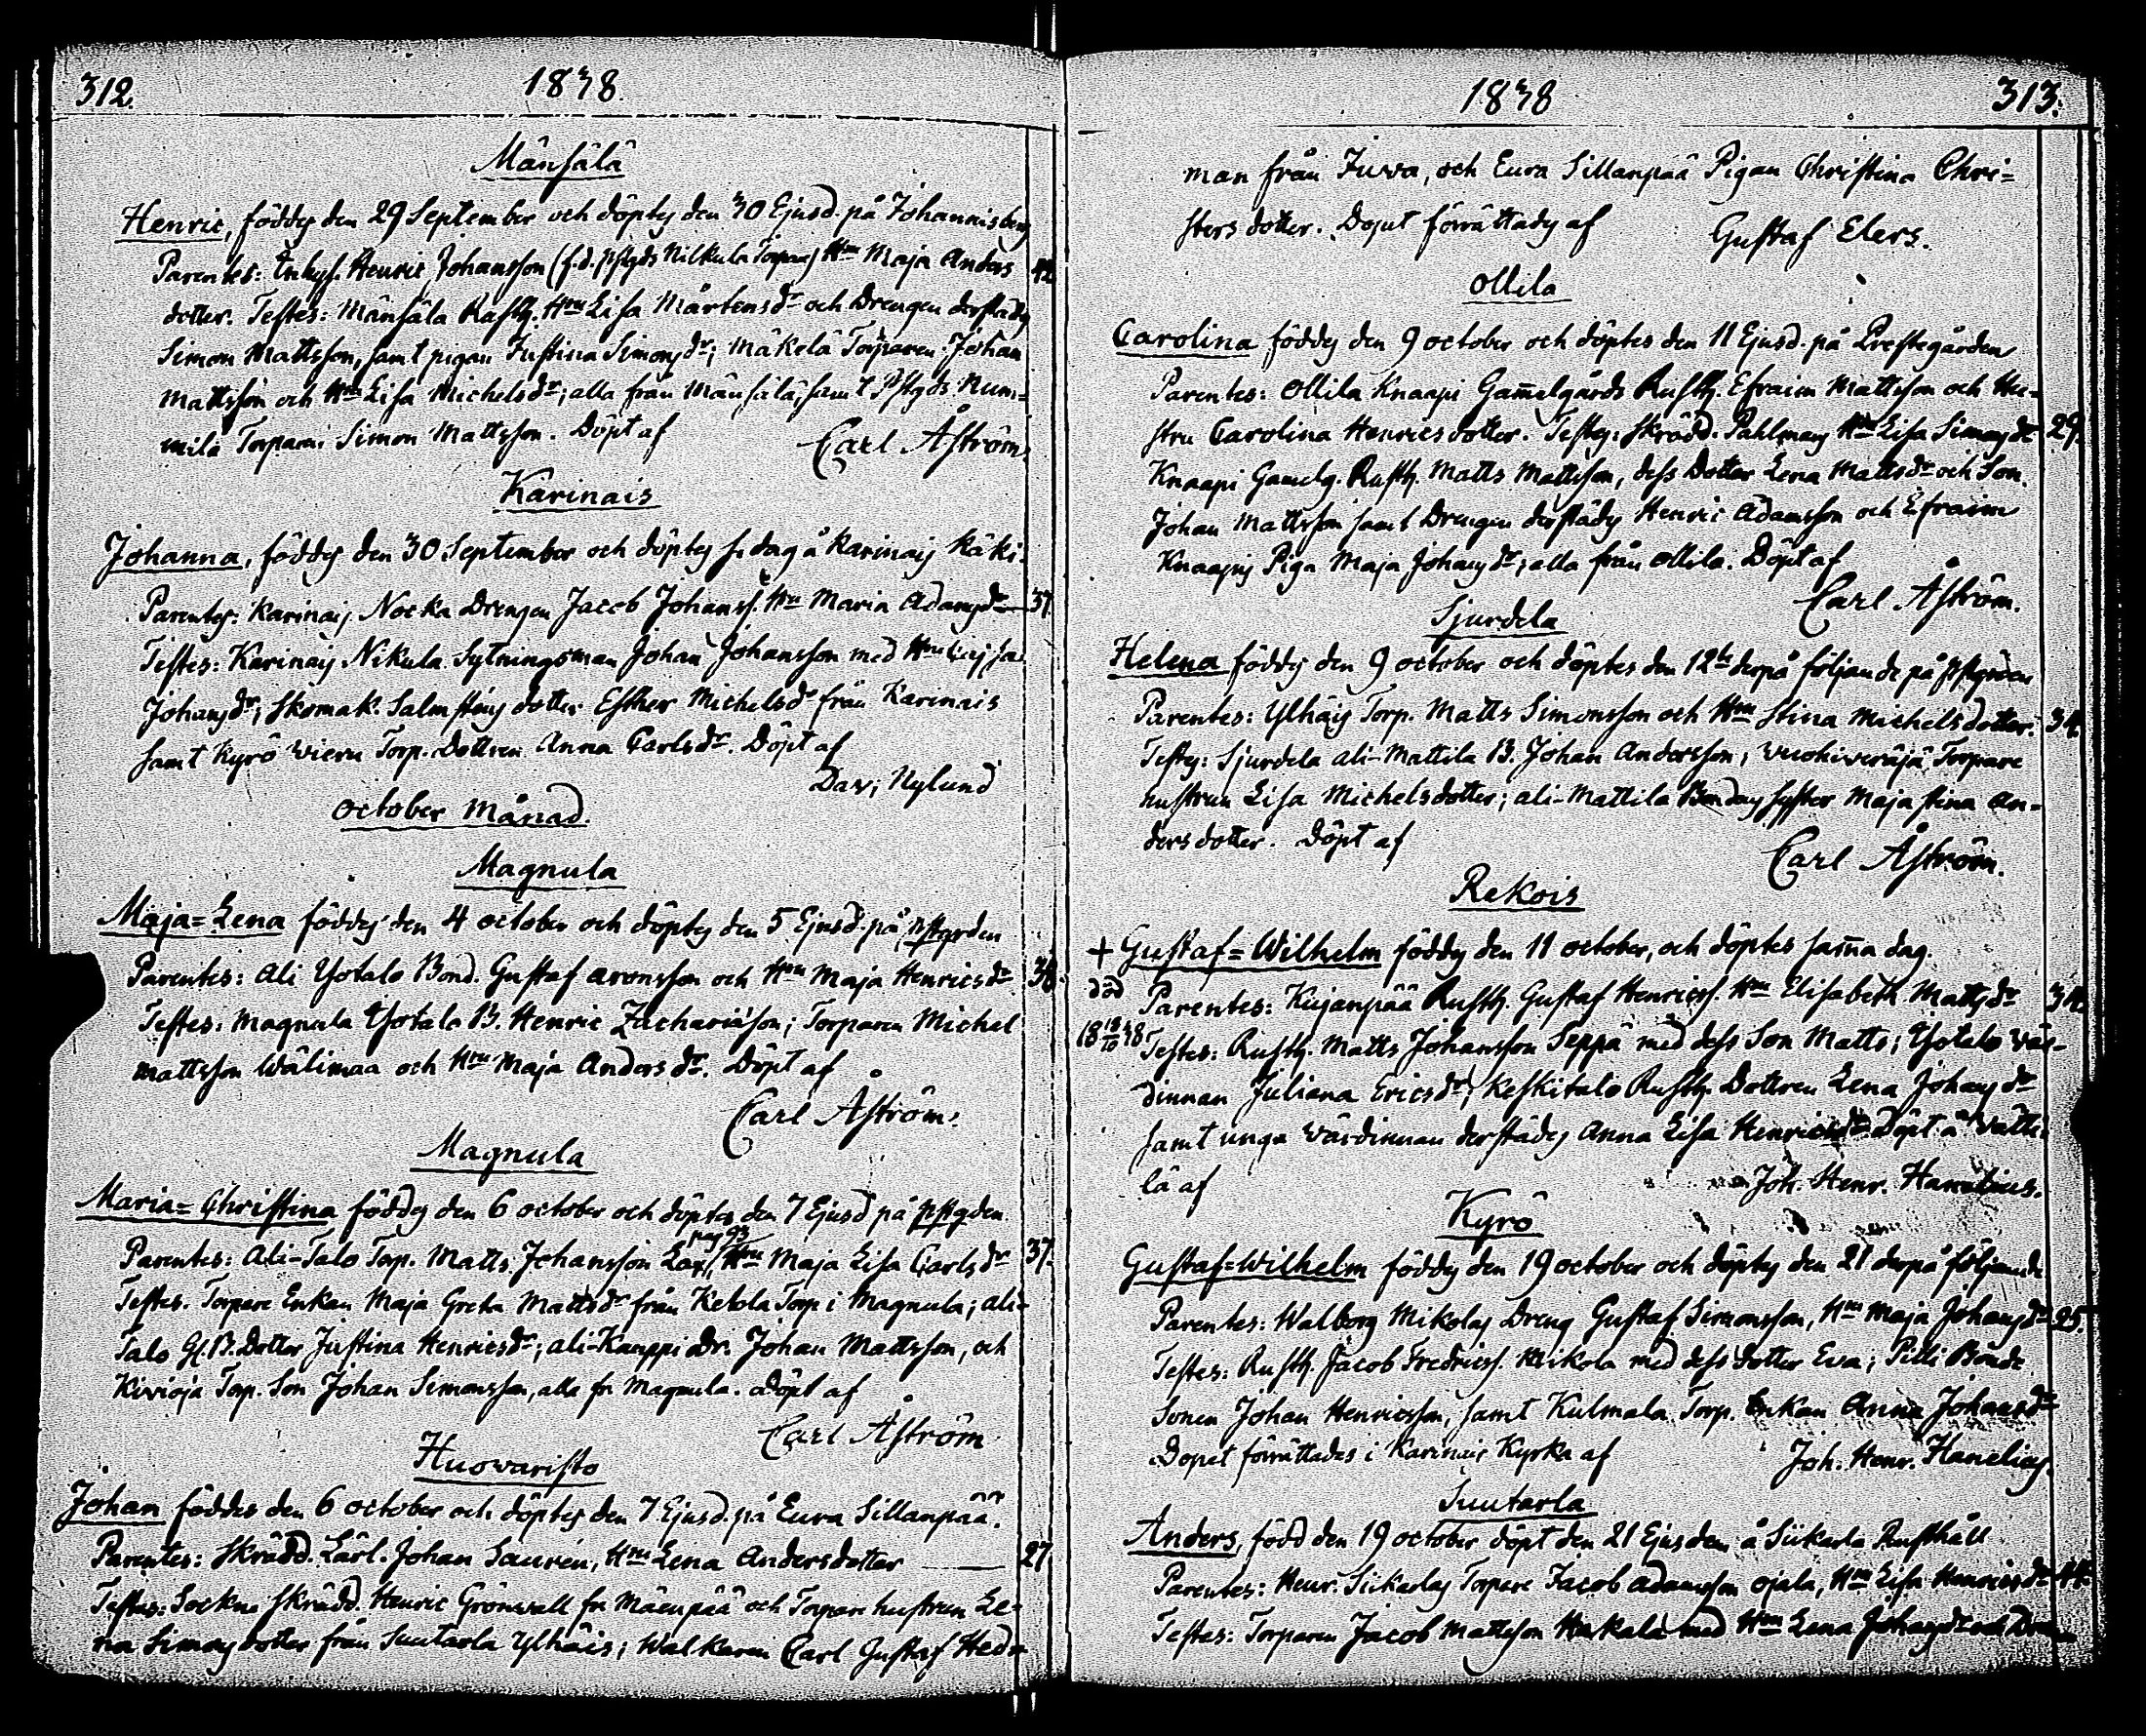 312.
1838.
Mänsälä
Henric, föddes den 29 September och döptes den 30 Ejusd. på Johannisberg
Parentes: Inhys. Henric Johansson (f.d. Nilkula Torpare) Hru Maja Anders 42
dotter. Testes: Mänsälä Rusth. Hru Lisa Mårtensdr och Drengen derstädes
Simon Mattsson, samt pigan Justina Simonsdr; Mäkelä Torparen Johan
Mattsson och Hru Lisa Michelsdr; alla från Mänsälä, samt Num-
mila Torparen Simon Mattsson. Döpt af Carl Åström.
Karinais
Johanna, föddes den 30 September och döptes s. dag å Karinais Käki.
Parentes: Karinais Nocka Drengen Jacob Johanss. Hru Maria Adamsdr 37.
Testes: Karinais Nikula Sytningsman Johan Johansson med Hru Cajsa
Johansdr; Skomak. Salmsténs dotter Esther Michelsdr från Karinais
samt Kyrö Vieru Torp. Dottren Anna Carlsdr. Döpt af
Dav; Nylund
October Månad.
Magnula
Maja=Lena föddes den 4 october och döptes den 5 Ejusd. på pstgrden
Parentes: Ali Yotalo Bond. Gustaf Aronsson och Hru Maja Henricsdr 38.
Testes: Magnula Yotalo B. Henric Zachariäson; Torparen Michel
Mattsson Wälimaa och Hru Maja Andersdr. Döpt af
Carl Åström.
Magnula
Maria=Christina föddes den 6 october och döptes den 7 Ejusd på pstgden
Parentes: Ali-Talo Torp. Matts Johansson Lax, Hru Maja Lisa Carlsdr 37.
Testes. Torpare Enkan Maja Greta Mattsdr från Ketola Torp i Magnula; Ali-
Talo Gl. B. Dotter Justina Henricsdr; Ali-Kauppi Dr. Johan Mattsson, och
Kivioja Torp. Son Johan Simonsson, alla fr. Magnula. Döpt af
Carl Åström
Huovaristo
Johan föddes den 6 october och döptes den 7 Ejusd. på Eura Sillanpää.
Parentes: Skrädd. Lärl. Johan Saurén, Hru Lena Andersdotter 27.
Testes: Sockne Skrädd. Henric Grönwall fr. Mäenpää och Torpare hustrun Le-
na Simonsdotter från Suutarla Ylhäis; Walkaren Carl Gustaf Hed-
1838
313.
man från Juva, och Eura Sillanpää Pigan Christina Chri=
stersdotter. Doput förrättades af Gustaf Elers.
Ollila
Carolina föddes den 9 october och döptes den 11 Ejusd. på Prestegården
Parentes: Ollila Knaapi Gam̄elgårds Rusth. Efraim Mattsson och Hu-
stru Carolina Henricsdotter. Testes: Skrädd. Pahlmans Hru Lisa Simonsdr 29.
Knaapi Gamelg. Rusth. Matts Mattsson, dess Dotter Lena Mattsdr och Son
Johan Mattsson samt Drengen derstädes Henric Adamsson och Efraim
Knaapis Piga Maja Johansdr; alla från Ollila. Döpt af
Carl Åström.
Sjurdela
Helena föddes den 9 october och döptes den 12te derpå följande på pstgrden
Parentes: Ylhäis Torp. Matts Simonsson och Hru Stina Michelsdotter. 34.
Testes: Sjurdela Ali-Mattila B. Johan Andersson; Vuohiveräjä Torpare
hustrun Lisa Michelsdotter; Ali-Mattila Bondens syster Maja Stina An-
dersdotter. Döpt af
Carl Åström.
Rekois
+ Gustaf=Wilhelm föddes den 11 october, och döptes sam̄a dag.
död
Parentes: Kujanpää Rusth. Gustaf Henricss. Hru Elisabeth Mattsdr 34.
18 18/10 38
Testes: Rusth. Matts Johansson Seppä med dess Son Matts; Yotalo Vär-
dinnan Juliana Ericsdr; Keskitalo Rusth. Dottren Lena Johansdr
samt unga Värdinnan derstädes Anna Lisa Henricsdr Döpt å Vätti-
lä af
Joh. Henr. Hanelius.
Kyrö
Gustaf=Wilhelm föddes den 19 october och döptes den 21 derpå följande
Parentes: Walborg Mikolas Dreng Gustaf Simonsson, Hru Maja Johansdr 25.
Testes: Rusth. Jacob Fredricss. Mikola med dess dotter Eva; Pilli Bonde
Sonen Johan Henricsson, samt Kulmala Torp. Enkan Anna Johansdr
Dopet förrättades i Karinais Kyrka af Joh. Henr. Hanelius.
Suutarla
Anders, född den 19 october döpt den 21 Ejusdem å Siikarla Rusthåll
Parentes: Henr. Siikarlas Torpare Jacob Adamsson Ojala, Hru Lisa Henricsdr 44.
Testes: Torparen Jacob Mattsson Hukala med Hru Lena Johansdr och